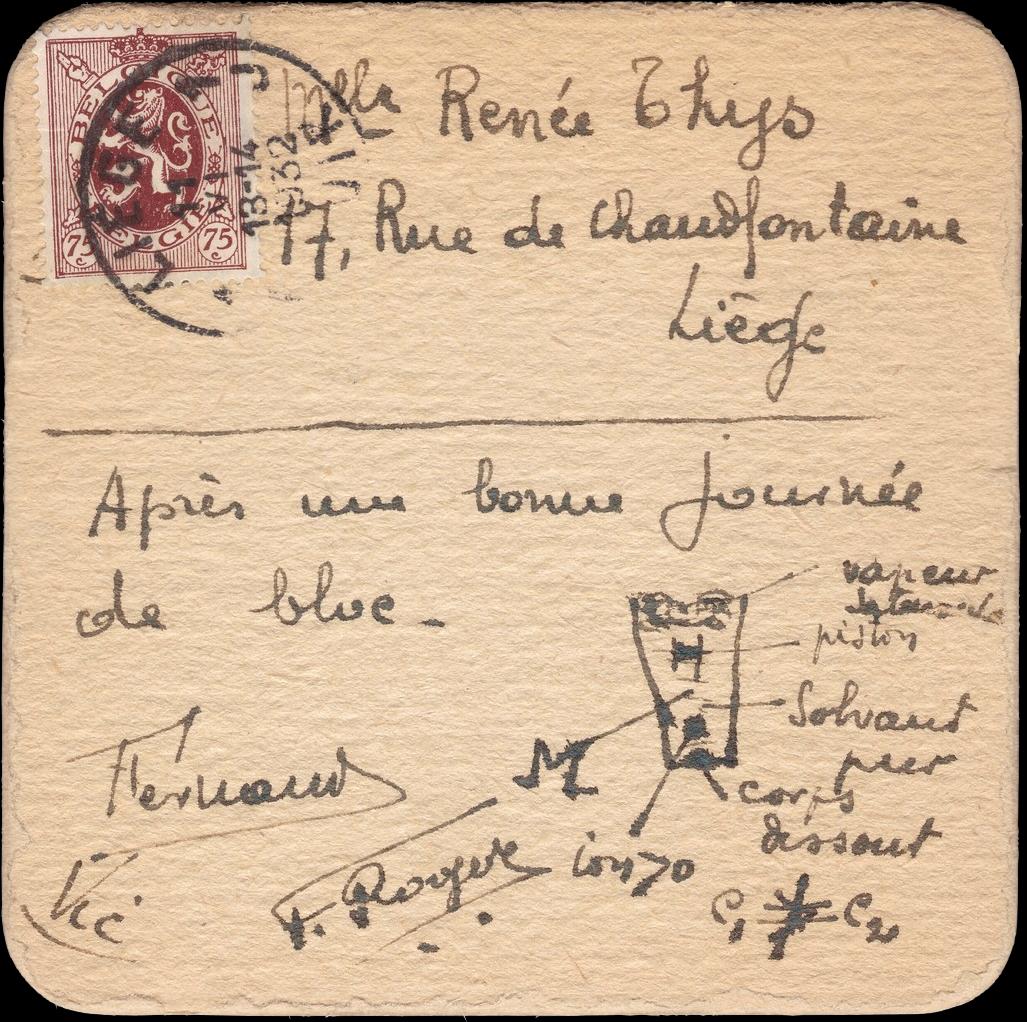 BELGIQUE
BELGIE
75 75
LIEGE 1
11
VI
13-14
1932
Melle Renée Thys
17, Rue de Chaudfontaine
Liège
Après une bonne journée
de bloc -
vapeur
piston
Solvant
pur
corps
dissout
M
ion
C1 C2
Fernand
Vic
F. Roger